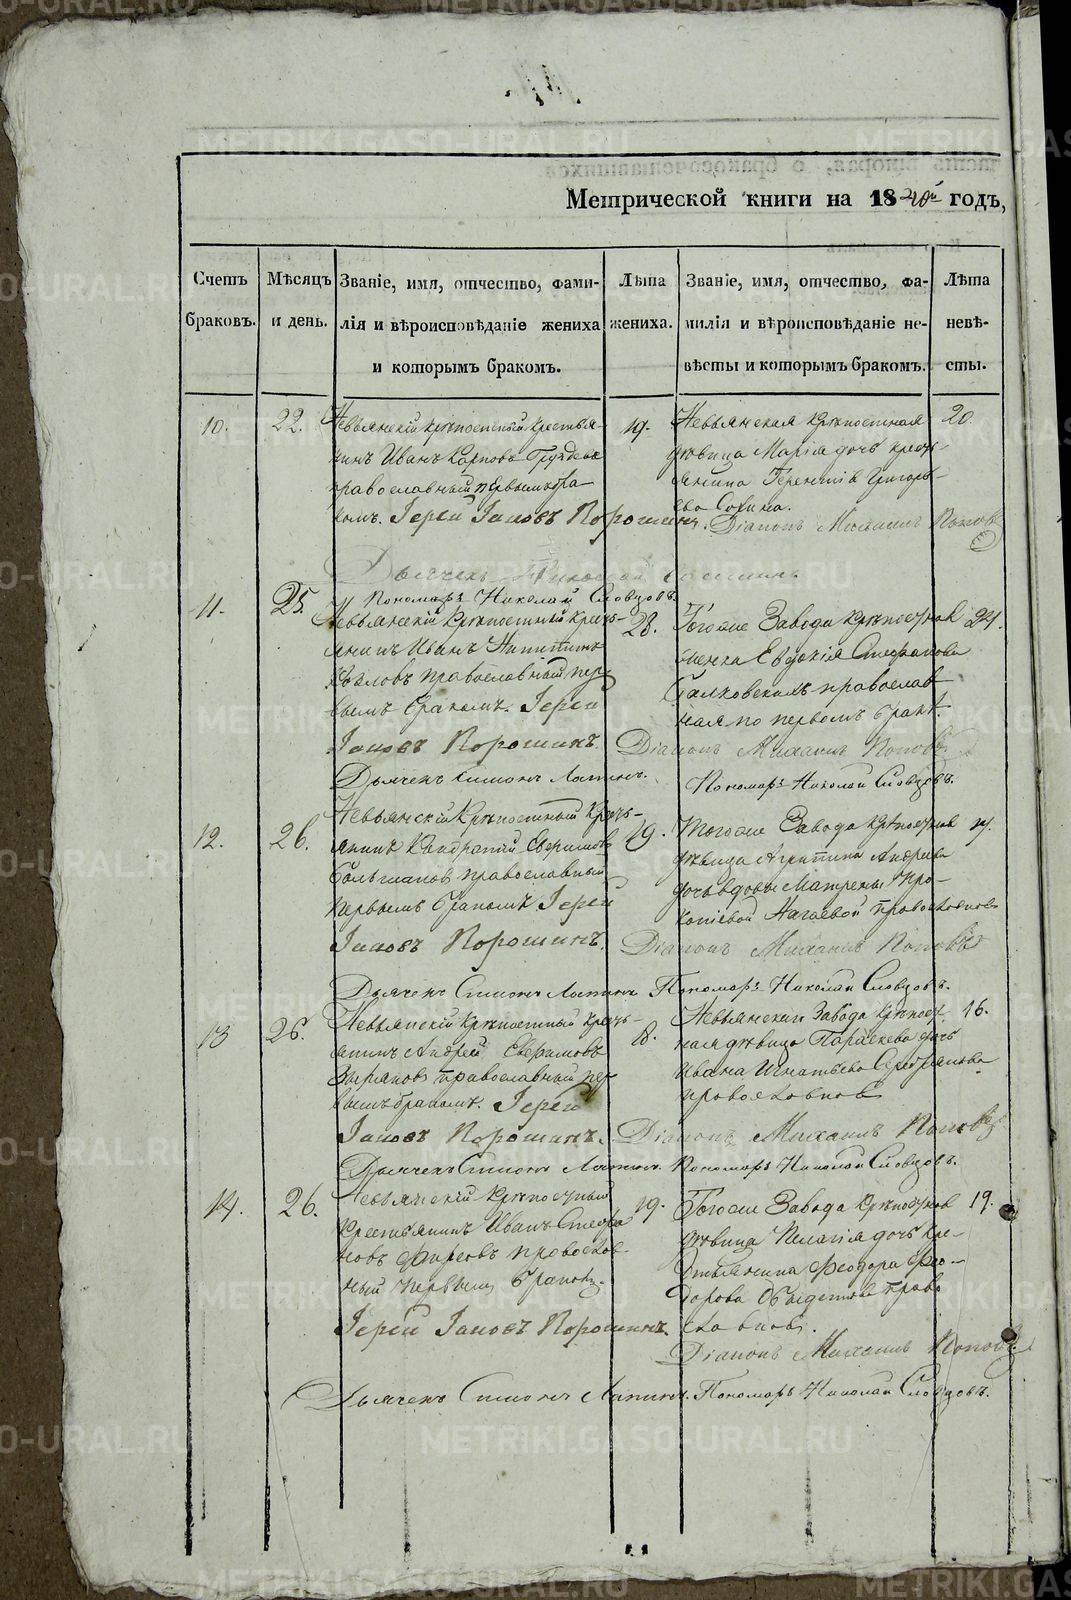 Метрической книги на 1840й годъ,
Счетъ браковъ.
Мѣсяцъ и день.
Званіе, имя, отчество, фами-
лія и вѣроисповѣданіе жениха
и которымъ бракомъ.
Лѣта жениха.
Званіе, имя, отчество, фа-
милія и вѣроисповѣданіе не-
вѣсты и которымъ бракомъ.
Лѣта невѣ-
сты.
10.
22.
Невьянскій крѣпостный крестья-
нинъ Иванъ Карповъ
православный первымъ бра-
комъ. Іерей Іаковъ Порошинъ.
19.
Невьянская крѣпостная
дѣвица Марія дочь крестъ-
янина Терентія Григорь-
ева
20.
Діаконъ Михаилъ Поповъ
Дьячекъ
Пономарь Николай Словцовъ.
11.
25.
Невьянскій крѣпостный кресть-
янинъ Иванъ Никитинъ
православный пер-
вымъ бракомъ. Іерей
Іаковъ Порошинъ.
Дьячекъ Симонъ Лапинъ.
28.
Тогоже Завода крѣпостная
Евдокія Стефанова
православ-
ная по первомъ бракѣ.
24.
Діаконъ Михаилъ Поповъ
Пономарь Николай Словцовъ.
12.
26.
Невьянскій крѣпостный кресть-
янинъ
православный
первымъ бракомъ Іерей
Іаковъ Порошинъ.
Дьячекъ Симонъ Лапинъ
19.
Тогоже Завода крѣпостная
дѣвица Агрипина Андреева
дочь вдовы Матрены Про-
копіевой Нагаевой православная
Діаконъ Михаилъ Поповъ
Пономарь Николай Словцовъ.
13
26.
Невьянскій крѣпостный кресть-
янинъ Андрей
Зыряновъ православный пер-
вымъ бракомъ. Іерей
Іаковъ Порошинъ.
Дьячекъ Симонъ Лапинъ.
18.
Невьянскаго Завода крѣпост-
ная дѣвица Параскева дочь
Ивана Игнатьева Серебрякова
православная
16.
Діаконъ Михаилъ Поповъ
Пономарь Николай Словцовъ.
14.
26.
Невьянскій крѣпостный
крестьянинъ Иванъ Стефа
новъ православ-
ный первымъ бракомъ.
Іерей Іаковъ Порошинъ.
19.
Тогоже Завода крѣпостная
дѣвица Пелагія дочь кре-
стьянина Феодора Фео-
дорова право
славная.
19.
Діаконъ Михаилъ Поповъ
Дьячекъ Симонъ Лапинъ. Пономарь Николай Словцовъ.
METRIKI.GASO-URAL.RU